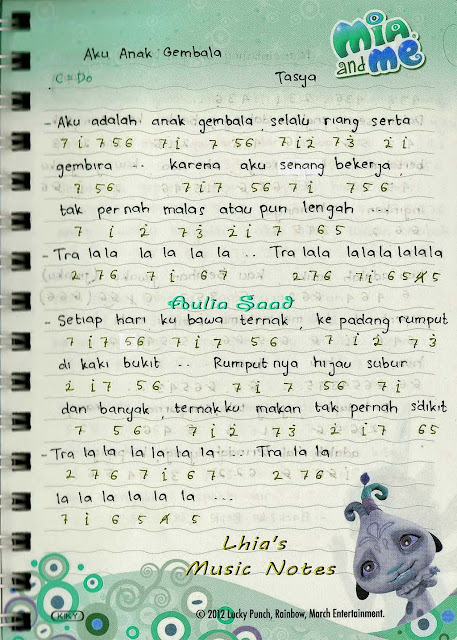 Mia and me
Aku Anak Gembala
C = Do Tasya
- Aku adalah anak gembala, selalu riang serta
7 i 7 5 6 7 i 7 5 6 7 i 2 7 3 2 i
gembira .. karena aku senang bekerja,
7 5 6 7 i 7 5 6 7 i 7 5 6
tak pernah malas atau pun lengah ...
7 i 2 7 3 2 i 7 6 5
- Tra lala la la la la .. Tra lala lalalalala
2 7 6 7 i 6 7 2 7 6 7 i 6 5 4 5
Aulia Saad
- Setiap hari ku bawa ternak, ke padang rumput
7 i 7 5 6 7 i 7 5 6 7 i 2 7 3
di kaki bukit .. Rumput nya hijau subur
2 i 7 5 6 7 i 7 5 6 7 i
dan banyak ternak ku makan tak pernah s'dikit
7 5 6 7 i 2 7 3 2 i 7 6 5
- Tra la la la la la la ... Tra la la
2 7 6 7 i 6 7 2 7 6
la la la la la la ...
7 i 6 5 4 5
Lhia's
Music Notes
KIKY
© 2012 Lucky Punch, Rainbow, March Entertainment.